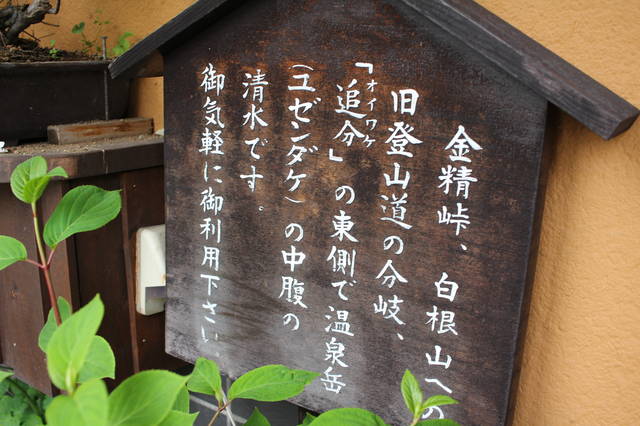 金精峠、白根山への
旧登山道の分岐、
「追分」の東側で温泉岳
オイワケ
(ユゼンダケ)の中腹の
清水です。
御気軽に御利用下さい。